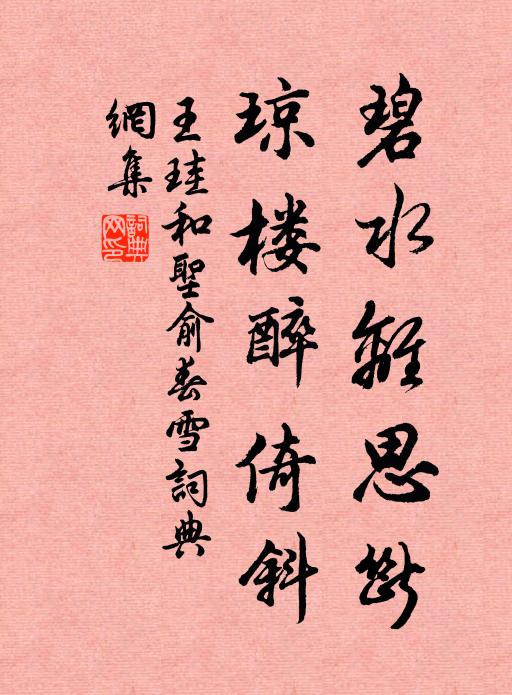 碧水離思斷
琼楼醉倚斜
王珪和聖俞春雪詞典
網集
詞典網印